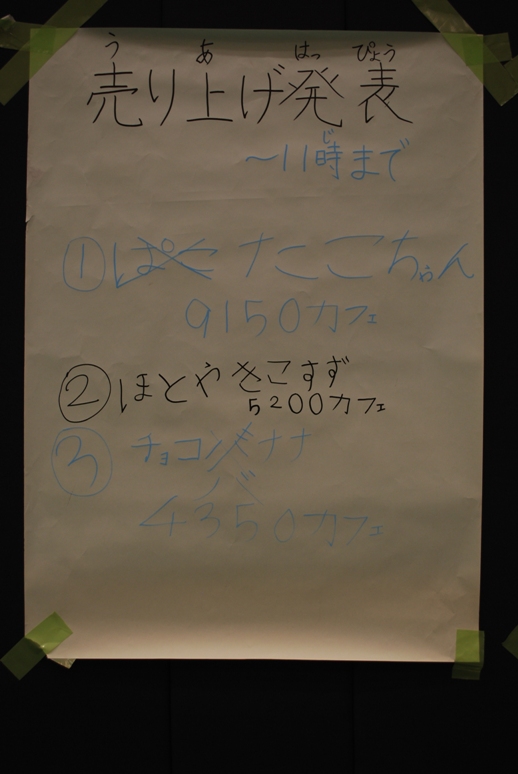 う あ はっ ぴょう
売り上げ発表
じ
~11時まで
① たこちゃん
9150カフェ
② ほとやきこすず
5200カフェ
③ チョコバナナ
4350カフェ